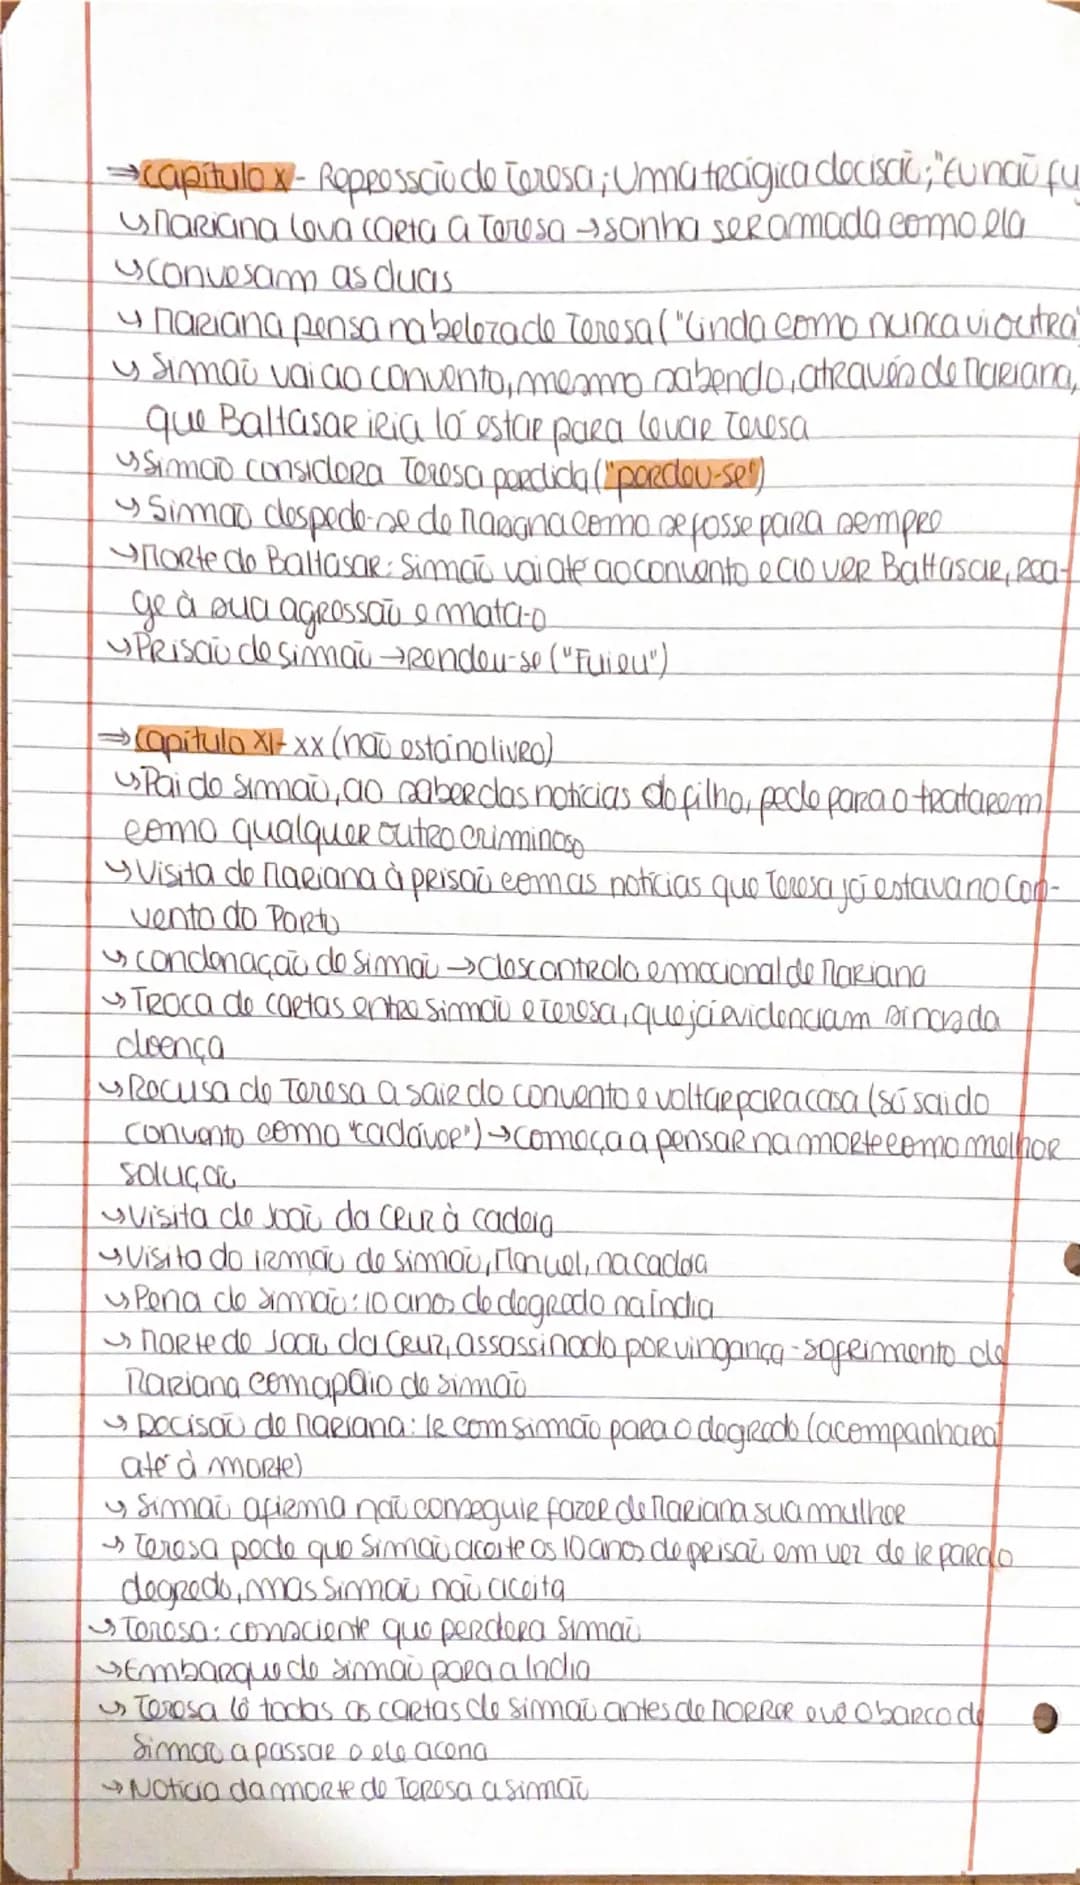 ⇒ Capítulo X - Repressão de Teresa; Uma trágica decisão; "Eu não fu
↳ Mariana leva carta a Teresa → sonha ser amada como ela
↳ Convesam as duas
↳ Mariana pensa na beleza de Teresa ("Linda como nunca vi outra"
↳ Simão vai ao convento, mesmo sabendo, através de Mariana,
que Baltasar iria lá estar para levar Teresa
↳ Simão considera Teresa perdida ("perdeu-se")
↳ Simão despede-se de Mariana como se fosse para sempre
↳ Morte de Baltasar: Simão vai até ao convento e ao ver Baltasar, rea-
ge à sua agressão e mata-o
↳ Prisão de Simão → rendeu-se ("Fui eu")
⇒ Capítulo XI - XX (não está no livro)
↳ Pai de Simão, ao saber das notícias do filho, pede para o tratarem
como qualquer outro criminoso
↳ Visita de Mariana à prisão com as notícias que Teresa já estava no Con-
vento do Porto
↳ Condenação de Simão → descontrolo emocional de Mariana
↳ Troca de cartas entre Simão e Teresa, que já evidenciam sinais da
doença
↳ Recusa de Teresa a sair do convento e voltar para casa (só sai do
convento como "cadáver") → começa a pensar na morte como melhor
solução
↳ Visita de João da Cruz à cadeia
↳ Visita do irmão de Simão, Manuel, na cadeia
↳ Pena de Simão: 10 anos de degredo na Índia
↳ Morte de João da Cruz, assassinado por vingança - sofrimento de
Mariana com apoio de Simão
↳ Decisão de Mariana: Ir com Simão para o degredo (acompanhará
até à morte)
↳ Simão afirma não conseguir fazer de Mariana sua mulher
↳ Teresa pede que Simão aceite os 10 anos de prisão em vez de ir para o
degredo, mas Simão não aceita
↳ Teresa: consciente que perdera Simão
↳ Embarque de Simão para a Índia
↳ Teresa lê todas as cartas de Simão antes de morrer e vê o barco de
Simão a passar e ele acena
↳ Notícia da morte de Teresa a Simão